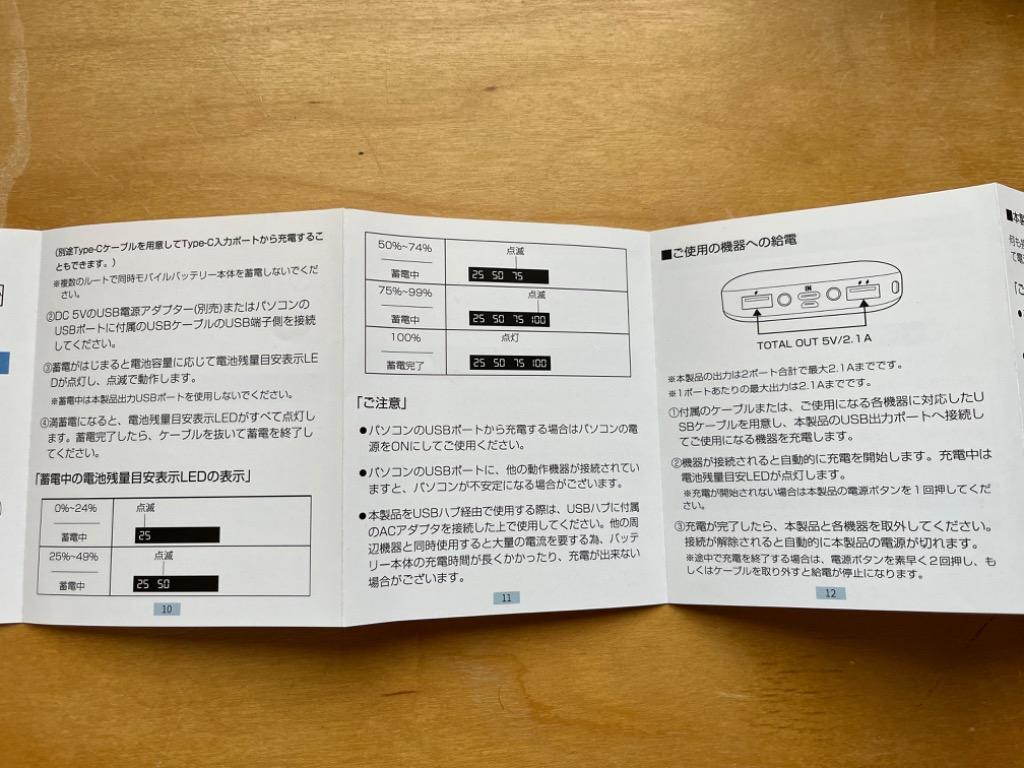 (別途Type-Cケーブルを用意してType-C入力ポートから充電するこ
ともできます。)
※複数のルートで同時モバイルバッテリー本体を蓄電しないでくだ
さい。
②DC 5VのUSB電源アダプター(別売)またはパソコンの
USBポートに付属のUSBケーブルのUSB端子側を接続
してください。
③蓄電がはじまると電池容量に応じて電池残量目安表示LE
Dが点灯し、点滅で動作します。
※蓄電中は本製品出力USBポートを使用しないでください。
④満蓄電になると、電池残量目安表示LEDがすべて点灯し
ます。蓄電完了したら、ケーブルを抜いて蓄電を終了し
てください。
「蓄電中の電池残量目安表示LEDの表示」
0%~24%
蓄電中
点滅
25
25%~49%
蓄電中
点滅
25 50
10
50%~74%
蓄電中
点滅
25 50 75
75%~99%
蓄電中
点滅
25 50 75 100
100%
蓄電完了
点灯
25 50 75 100
「ご注意」
●パソコンのUSBポートから充電する場合はパソコンの電
源をONにしてご使用ください。
●パソコンのUSBポートに、他の動作機器が接続されてい
ますと、パソコンが不安定になる場合がございます。
●本製品をUSBハブ経由で使用する際は、USBハブに付属
のACアダプタを接続した上で使用してください。他の周
辺機器と同時使用すると大量の電流を要する為、バッテ
リー本体の充電時間が長くかかったり、充電が出来ない
場合がございます。
11
■ご使用の機器への給電
IN
TOTAL OUT 5V/2.1A
※本製品の出力は2ポート合計で最大2.1Aまでです。
※1ポートあたりの最大出力は2.1Aまでです。
①付属のケーブルまたは、ご使用になる各機器に対応したU
SBケーブルを用意し、本製品のUSB出力ポートへ接続し
てご使用になる機器を充電します。
②機器が接続されると自動的に充電を開始します。充電中は
電池残量目安LEDが点灯します。
※充電が開始されない場合は本製品の電源ボタンを1回押してくだ
さい。
③充電が完了したら、本製品と各機器を取外してください。
接続が解除されると自動的に本製品の電源が切れます。
※途中で充電を終了する場合は、電源ボタンを素早く2回押し、も
しくはケーブルを取り外すと給電が停止になります。
12
■本